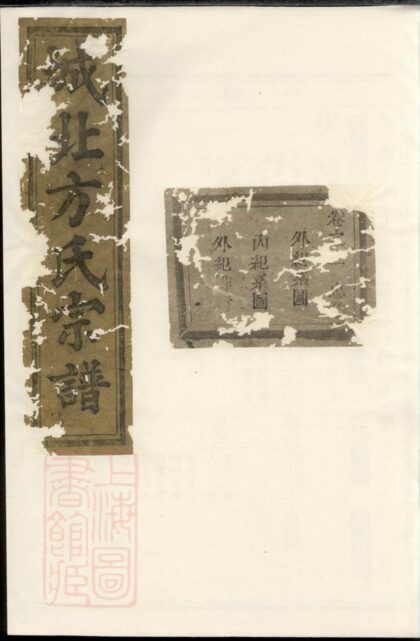 城北方氏宗譜
卷之一
外紀系圖
內紀系圖
外紀
上海圖
書館藏